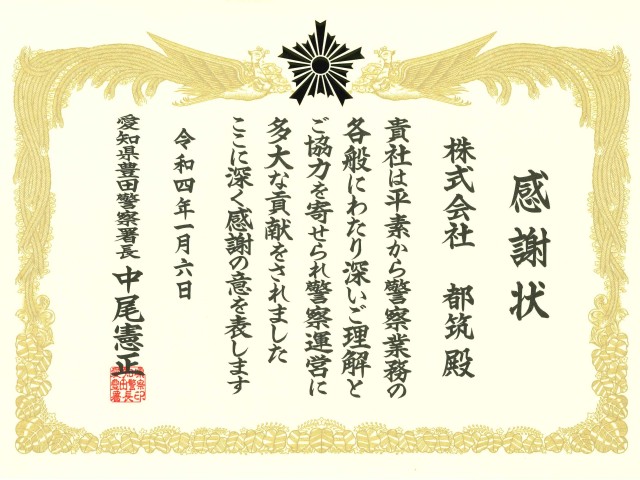 感謝状
株式会社 都筑殿
貴社は平素から警察業務の
各般にわたり深いご理解と
ご協力を寄せられ警察運営に
多大な貢献をされました
ここに深く感謝の意を表します
令和四年一月六日
愛知県豊田警察署長 中尾憲正